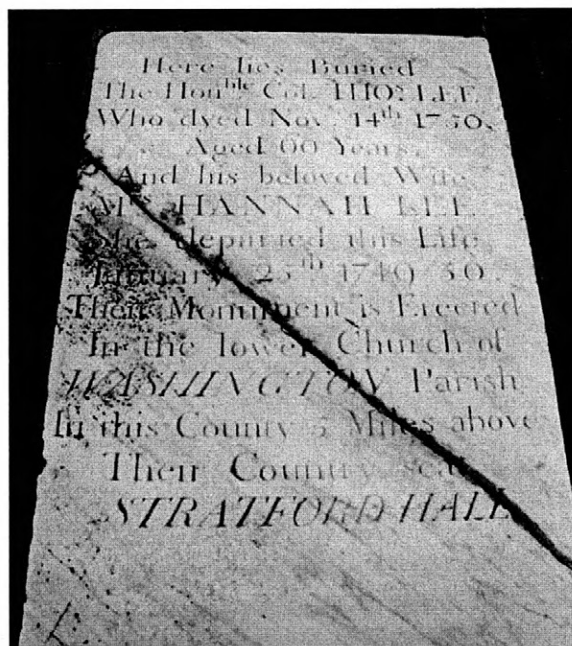 Here lies Buried
The Hon^ble Col. THO^s. LEE
Who dyed Nov. 14th 1750.
Aged 60 Years.
And his beloved Wife
M^rs HANNAH LEE
She departed this Life
January 25th 1749/50.
Their Monument is Erected
In the lower Church of
WASHINGTON Parish
In this County 5 Miles above
Their Country seat
STRATFORD HALL